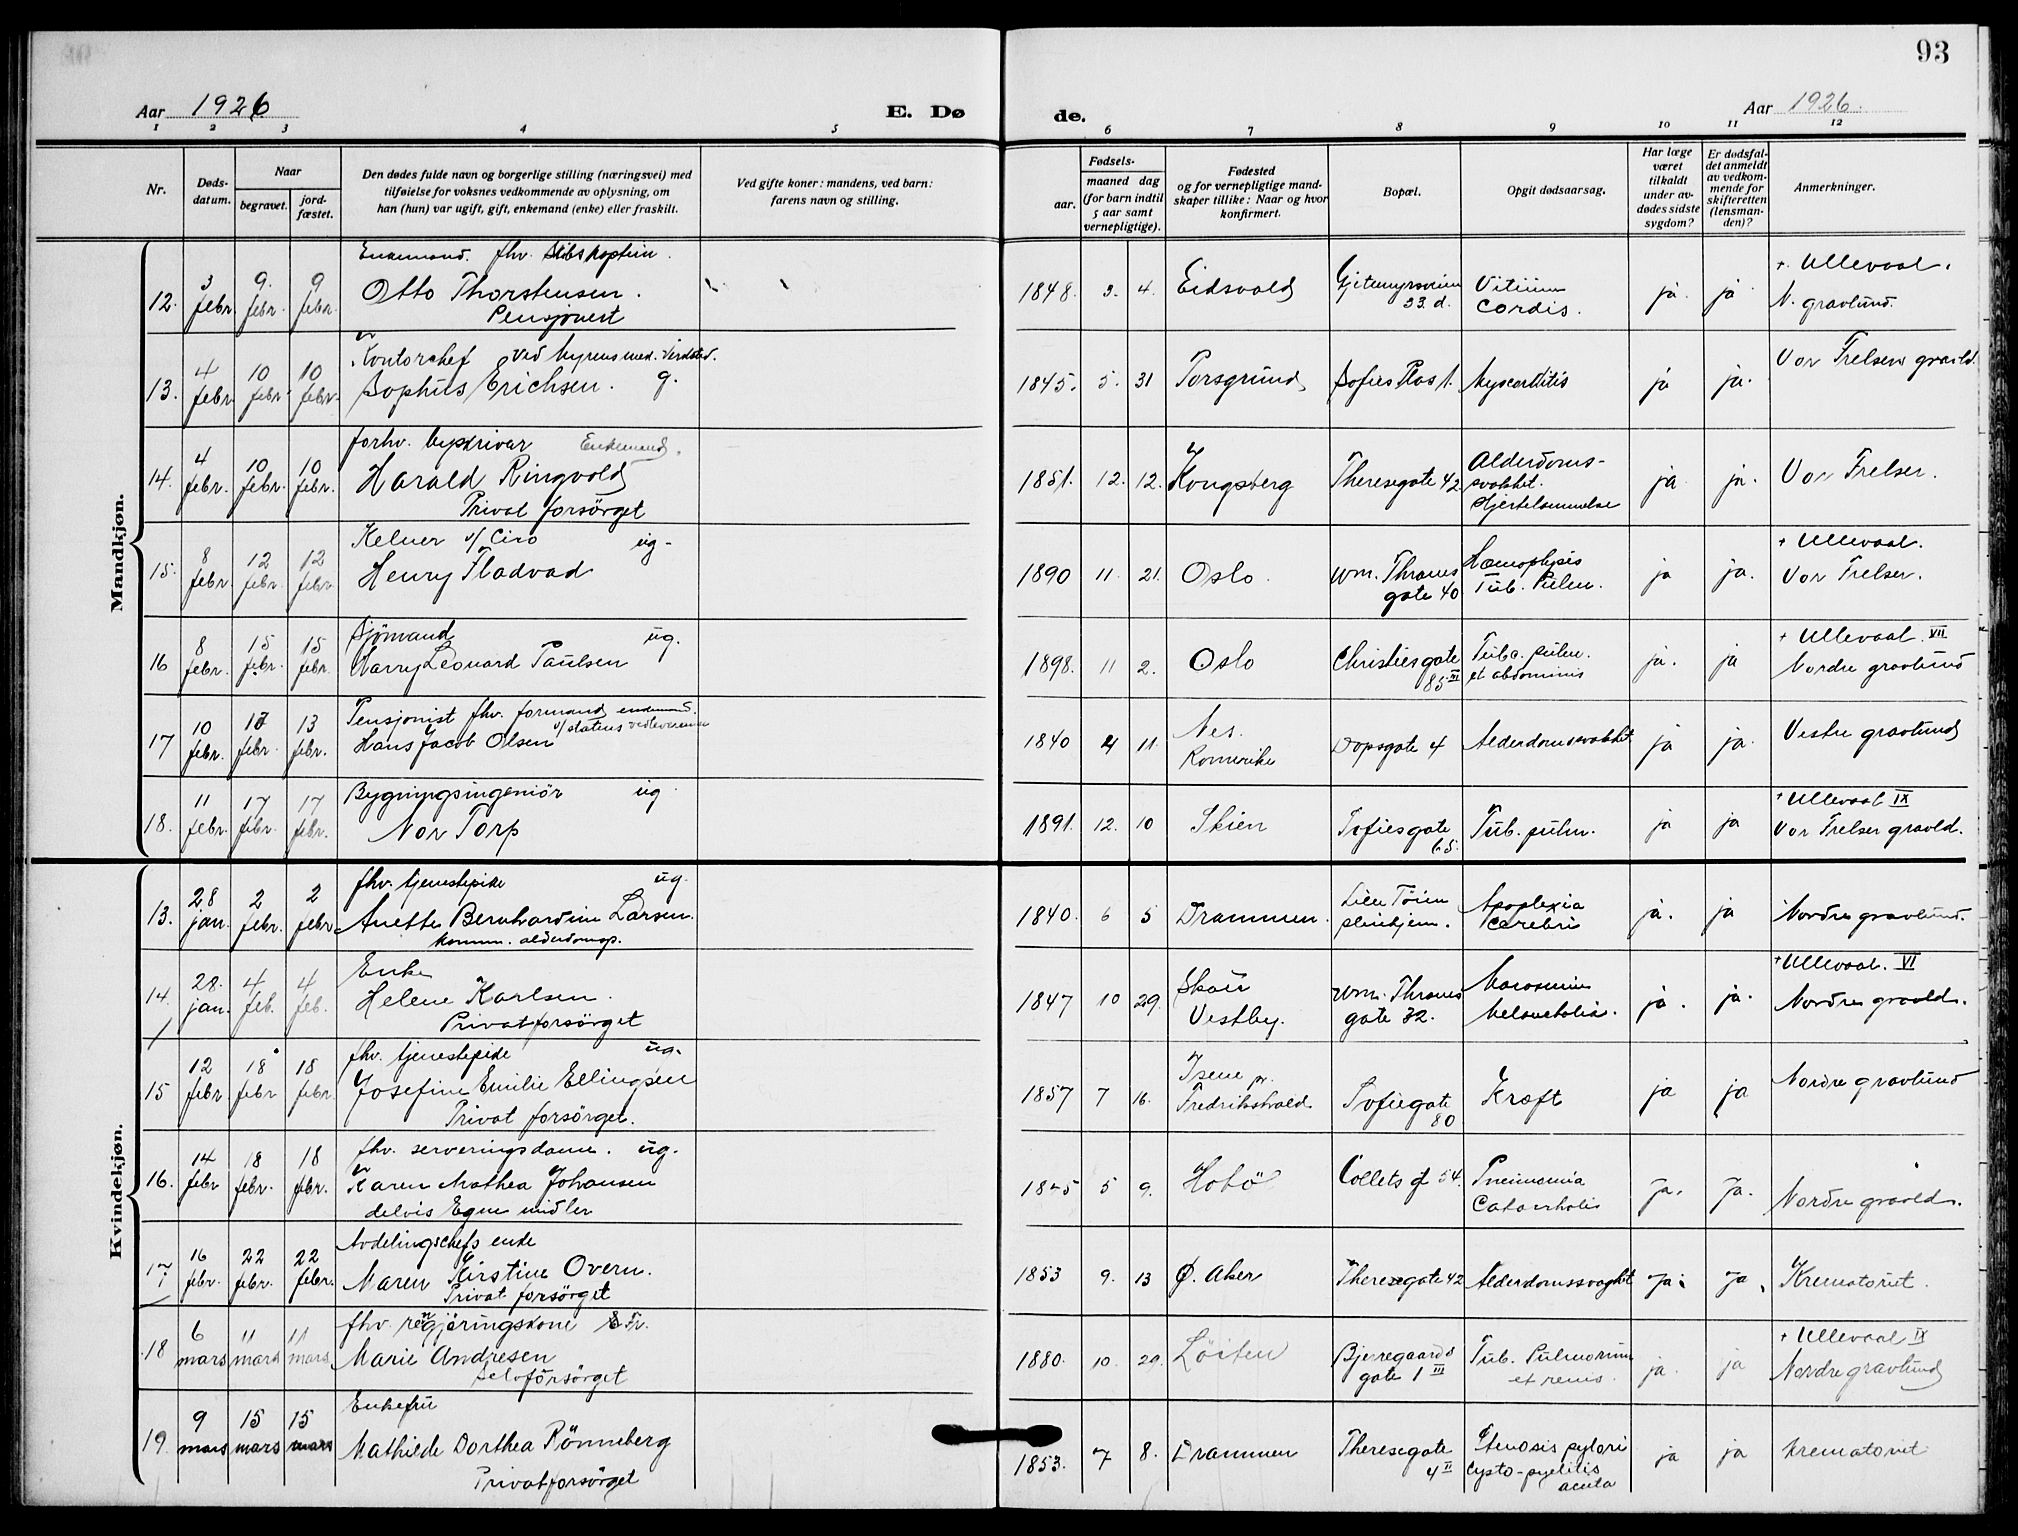 93
Aar 1926
E. Dø
de.
Aar 1926.
1 2 3 4 5 6 7 8 9 10 11 12
Nr.
Døds-
datum.
Naar
begravet.
jord-
fæstet.
Den dødes fulde navn og borgerlige stilling (næringsvei) med
tilføielse for voksnes vedkommende av oplysning, om
han (hun) var ugift, gift, enkemand (enke) eller fraskilt.
Ved gifte koner: mandens, ved barn:
farens navn og stilling.
Fødsels-
aar.
maaned dag
(for barn indtil
5 aar samt
vernepligtige).
Fødested
og for vernepligtige mand-
skaper tillike: Naar og hvor
konfirmert.
Bopæl.
Opgit dødsaarsag.
Har læge
været
tilkaldt
under av-
dødes sidste
sygdom?
Er dødsfal-
det anmeldt
av vedkom-
mende for
skifteretten
(lensman-
den)?
Anmerkninger.
Mandkjøn.
12. 3 febr. 9. febr. 9 febr.
Enkemand. fhv. Skibskaptein.
Otto Thorstensen.
Pensjonist
1848. 3. 4. Eidsvold
33. d.
Vitium
Cordis.
ja. ja
+ Ullevaal.
N. gravlund.
13. 4 febr. 10 febr. 10 febr.
Kontorchef ved Myrens mek. Verksted.
Sophus Erichsen. g.
1845. 5. 31 Porsgrund Sofies Plas 1. Myocarditis ja ja.
Vor Frelsers gravld.
14. 4 febr. 10 febr. 10 febr.
forhv. byskriver Enkemand.
Harald Ringvold
Privat forsörget
1851. 12. 12. Kongsberg Theresegate 42
Alderdoms-
svakhet.
Hjertelammelse
ja ja. Vor Frelser.
15. 8 febr. 12 febr. 12 febr.
Kelner v/ Ciro ug.
Henry Fladvad
1890 11. 21. Oslo.
Wm. Thranes
gate 40
Hæmoptysis
Tub. Pulm.
ja ja.
+ Ullevaal.
Vor Frelser.
16 8 febr. 15 febr. 15 febr.
Sjömand ug.
Harry Leonard Paulsen
1898. 11 2. Oslo
Christiesgate
85 III
Tubc. pulm.
et abdominis
ja. ja
+ Ullevaal VII
Nordre gravlund
17 10 febr. 13 febr. 13 febr.
Pensjonist fhv. formand enkemand.
v/ statens
Hans Jacob Olsen
1840 4 11.
Nes.
Romerike
Dopsgate 4 Alderdomssvakhet ja ja. Vestre gravlund
18. 11 febr. 17 febr. 17 febr.
Bygningsingeniör ug.
Nor Torp
1891. 12. 10 Skien
Sofiesgate
65.
Tub. pulm.
ja ja
+ Ullevaal IX
Vor Frelser gravld.
Kvindekjøn.
13. 28 jan. 2 febr. 2 febr.
fhv. tjenestepike ug.
Anette Bernhardine Larsen.
komm. alderdomsp.
1840. 6 5 Drammen.
Lille Töien
pleiehjem.
Apoplexia
Cerebri
ja. ja Nordre gravlund.
14. 28. jan. 4 feb. 4 feb.
Enke
Helene Karlsen.
Privat forsörget
1847 10 29.
Vestby.
Wm. Thranes
gate 32.
Marasmus
Melancholia.
ja. ja.
+ Ullevaal. VI
Nordre gravld.
15 12 febr. 18 febr. 18 febr.
fhv. tjenestepike ug.
Josefine Emilie Ellingsen
Privat forsörget.
1857 7 16.
pr.
Fredrikshald
Sofiegate
80
Kræft
ja ja Nordre gravlund
16. 14 febr. 18 febr. 18 febr.
fhv. serveringsdame. ug.
Karen Mathea Johansen
delvis Egne midler
5 9. Hobö Collets g 54.
Pneumonia
Catarrhalis
ja. ja. Nordre gravld.
17 16 febr. 22 febr. 22 febr.
Avdelingschefs enke
Maren Kirstine Overn.
Privat forsörget
1853 9. 13 Ø. Aker Theresegate 42 Alderdomssvaghet ja. ja. Krematoriet.
18 6 mars 11 mars 11 mars
fhv. rengjöringskone Fr.
Marie Andresen
Selvforsörget
1880. 10. 29. Löiten
Bjerregaards
gate 1 III
Tub. Pulmonum
et renis.
ja. ja
+ Ullevaal IX
Nordre gravlund
19. 9 mars 15 mars 15 mars
Enkefru
Mathilde Dorthea Rönneberg
Privat forsörget
1853. 7 8. Drammen
Theresegate
4 II
Stenosis pylori
Cysto-pyelitis
acuta
ja ja Krematoriet